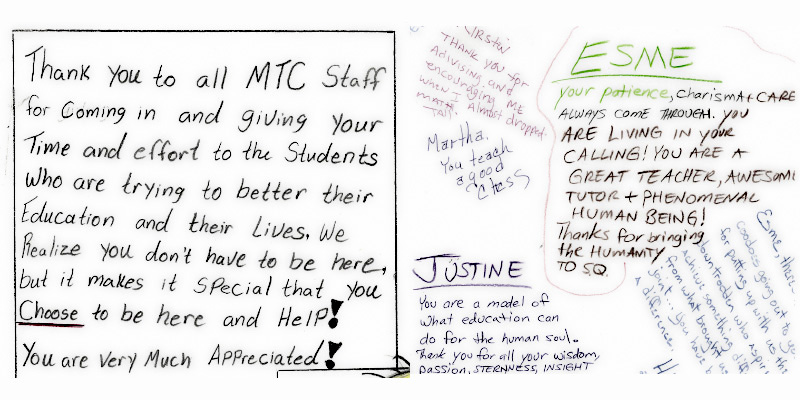 Thank you to all MTC Staff
for Coming in and giving your
Time and effort to the Students
who are trying to better their
Education and their Lives. We
Realize you don't have to be here,
but it makes it Special that you
Choose to be here and Help!
You are very Much Appreciated!
THANK YOU for
Advising and
encouraging ME
WHEN I Almost dropped
Martha.
You teach
a good
Class
ESME
Your patience, Charisma + CARE
ALWAYS COME THROUGH. YOU
ARE LIVING IN YOUR
CALLING! YOU ARE A
GREAT TEACHER, AWESOME
TUTOR + PHENOMENAL
HUMAN BEING!
Thanks for bringing
the HUMANITY
TO SQ.
JUSTINE
You are a model of
what education can
do for the human soul.
Thank you for all your wisdom,
passion, STERNNESS, INSIGHT
Esme,
going out to
for putting up with us
downtrodden who
achieve something
from what brought us
you
a difference.